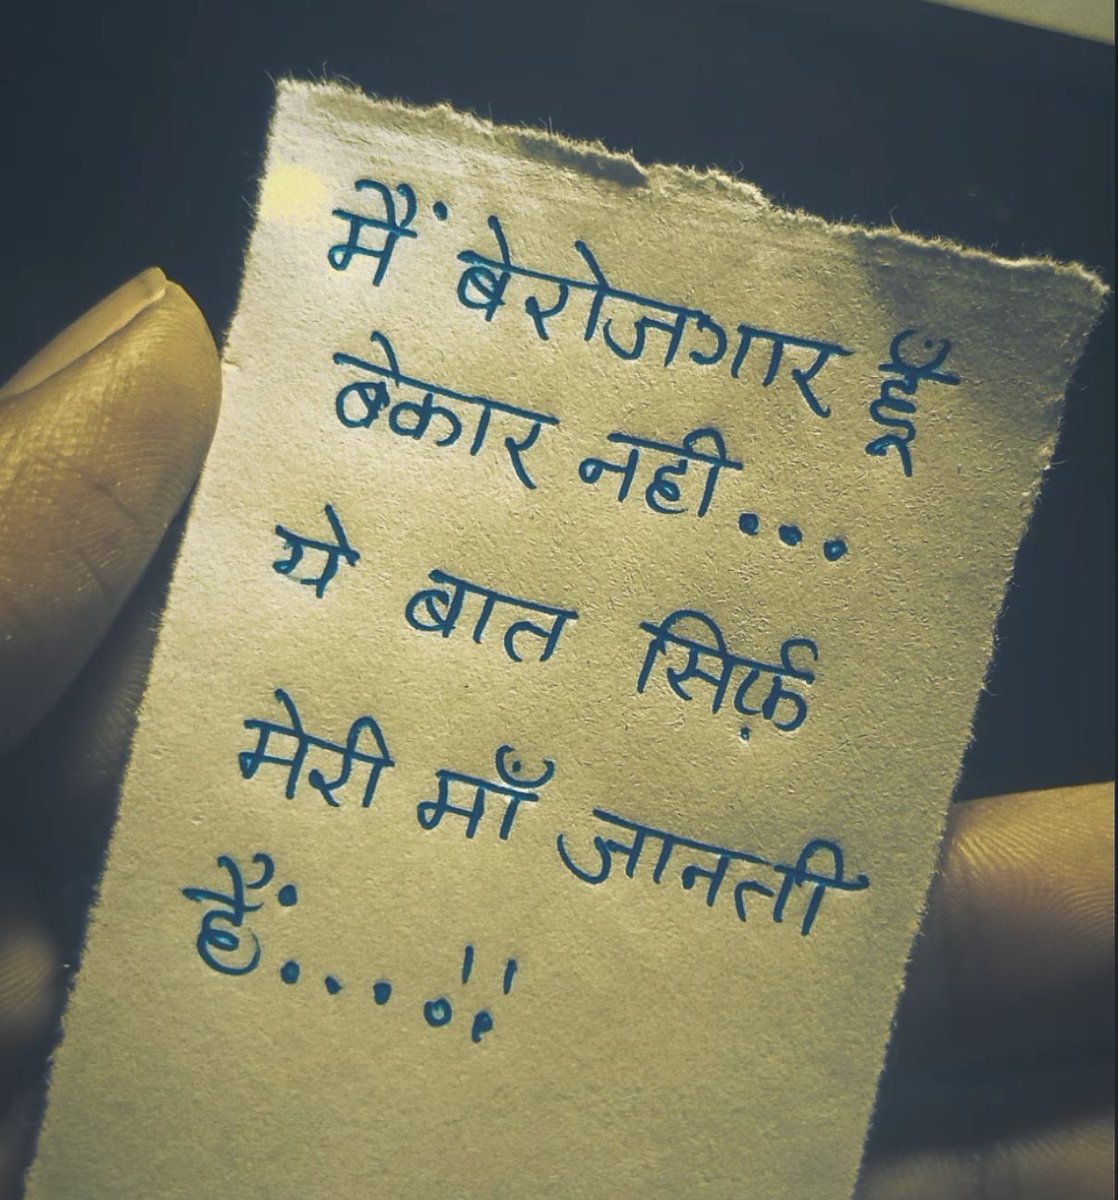 मैं बेरोजगार हूँ
बेकार नही...
ये बात सिर्फ़
मेरी माँ जानती
हैं....!!